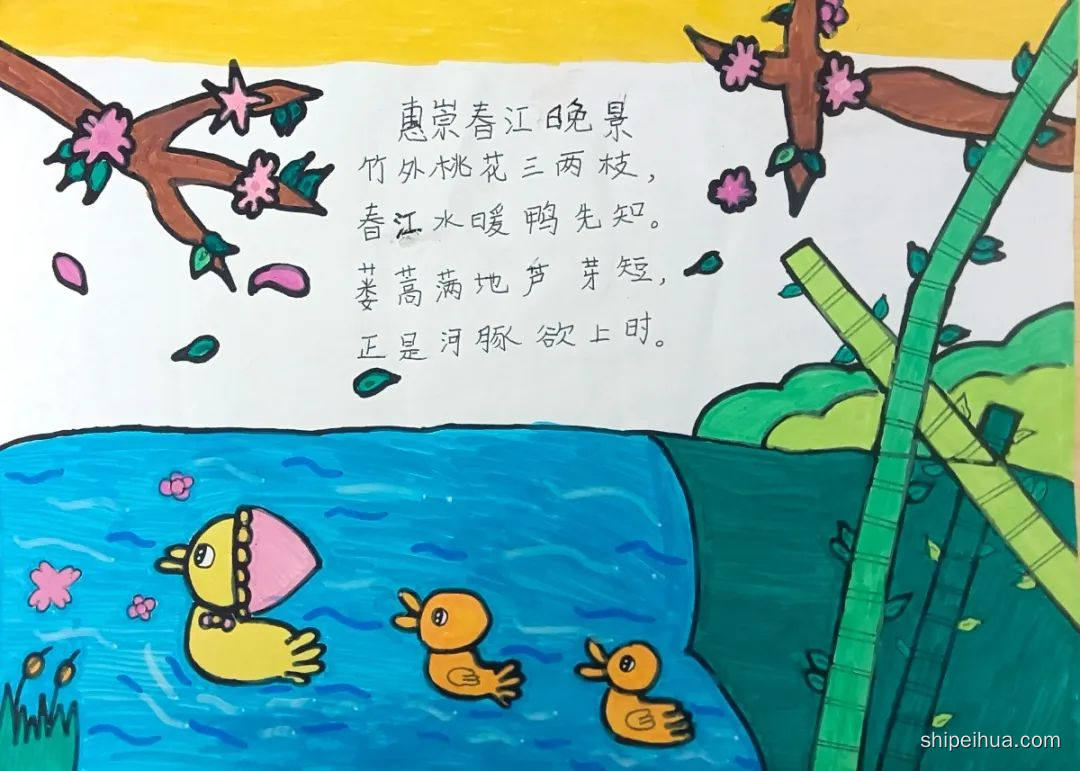 惠崇春江晚景
竹外桃花三两枝，
春江水暖鸭先知。
蒌蒿满地芦芽短，
正是河豚欲上时。
shipeihua.com